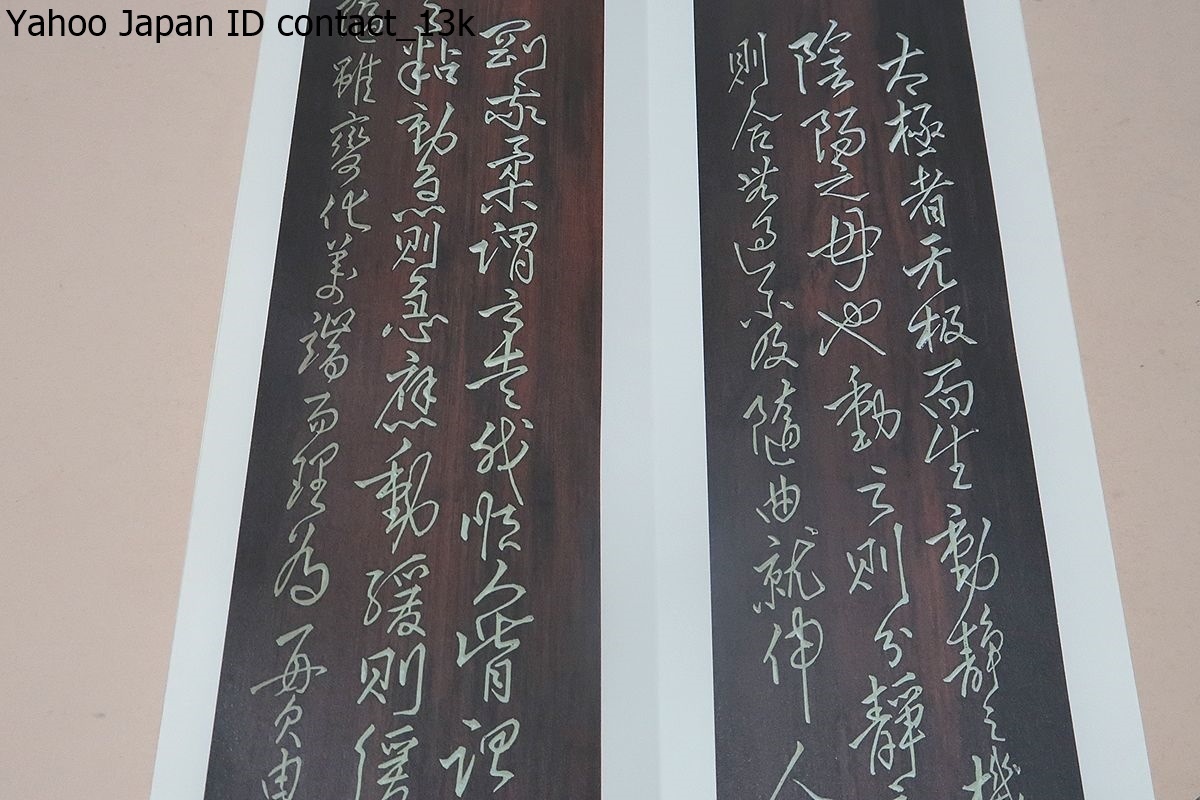 Yahoo Japan ID contact_13k
太極者无极而生動靜之機
陰陽之母也動之則分靜之
則合無過不及隨曲就伸人
剛我柔謂之走我順人背謂
之粘動急則急應動緩則緩
隨雖變化萬端而理為一貫由